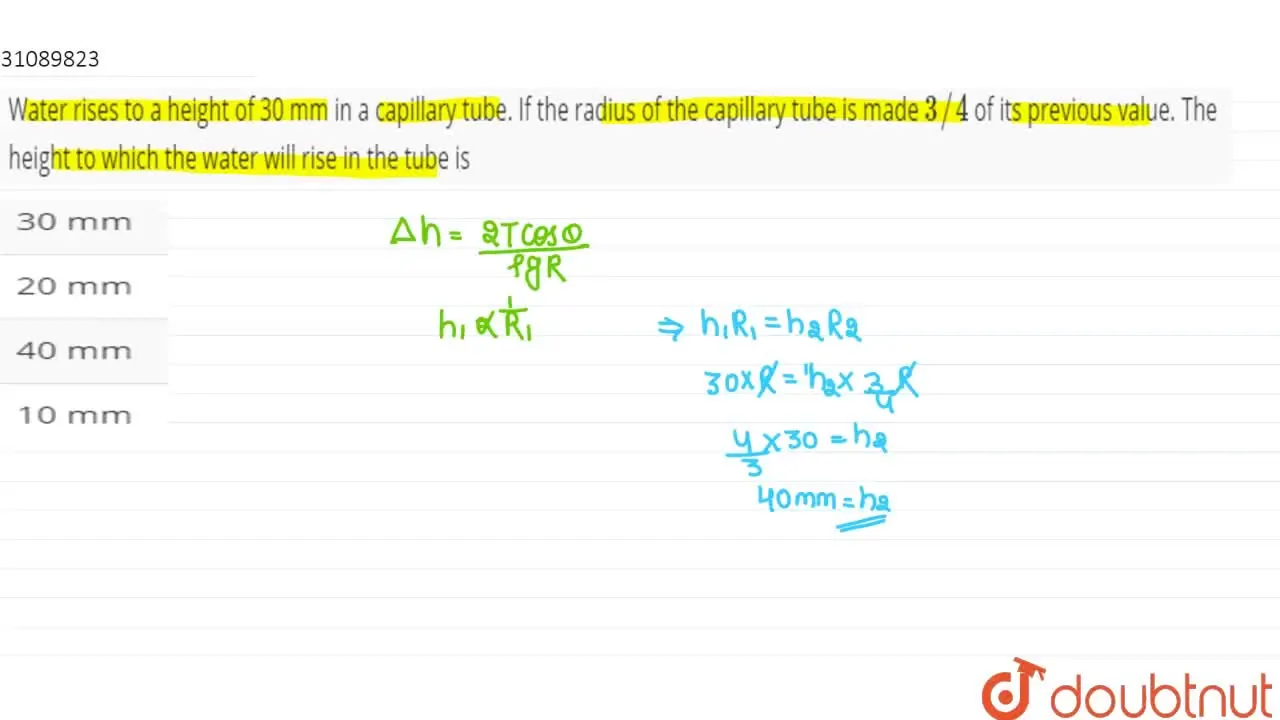 31089823
Water rises to a height of 30 mm in a capillary tube. If the radius of the capillary tube is made 3/4 of its previous value. The
height to which the water will rise in the tube is
30 mm
20 mm
40 mm
10 mm
Δh = 2T cosθ / ρgR
h₁ ∝ 1/R₁
⇒ h₁R₁ = h₂R₂
30 × R = h₂ × 3/4 R
4/3 × 30 = h₂
40mm = h₂
doubtnut